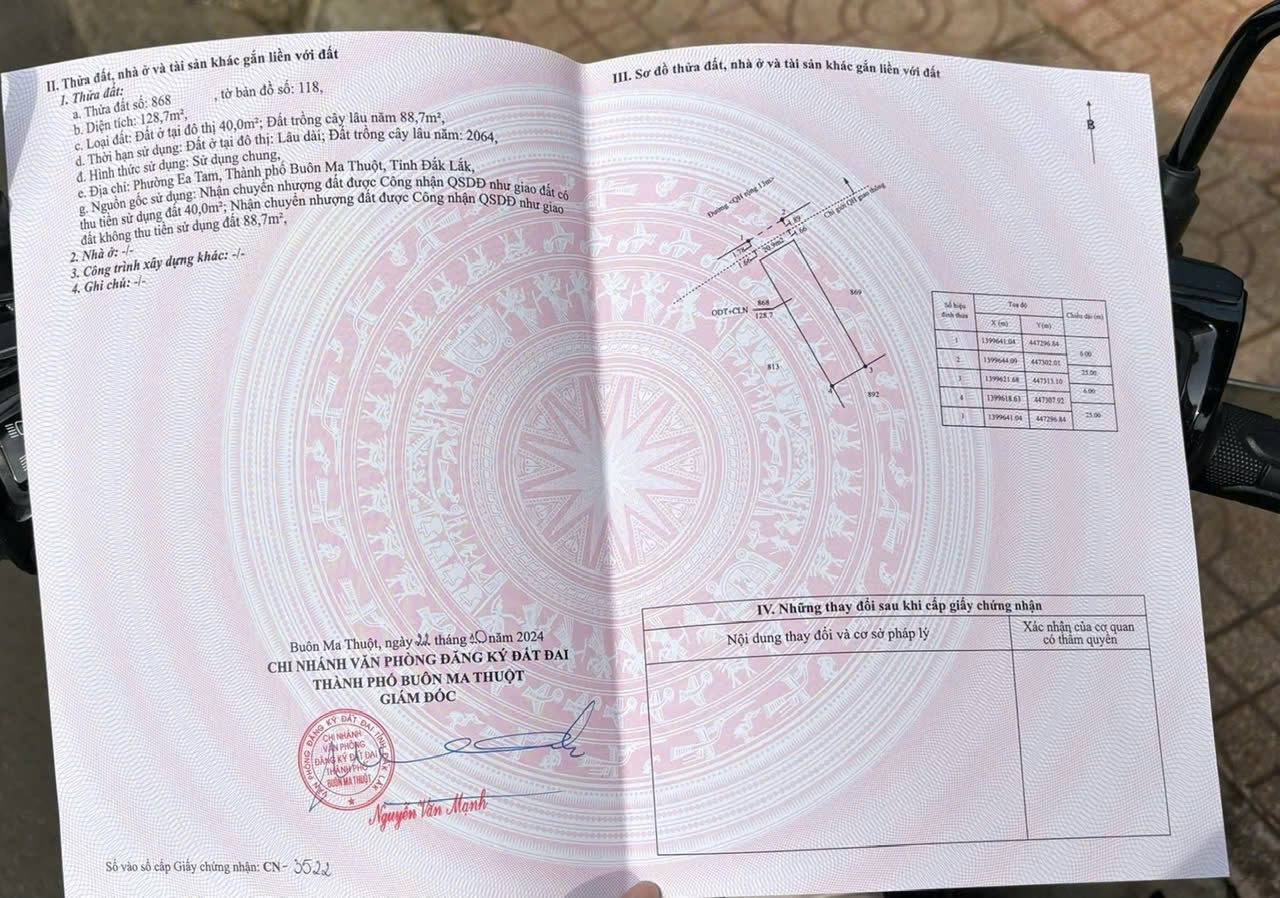 II. Thửa đất, nhà ở và tài sản khác gắn liền với đất
1. Thửa đất:
a. Thửa đất số: 868 , tờ bản đồ số: 118,
b. Diện tích: 128,7m²,
c. Loại đất: Đất ở tại đô thị 40,0m²; Đất trồng cây lâu năm 88,7m²,
d. Thời hạn sử dụng: Đất ở tại đô thị: Lâu dài; Đất trồng cây lâu năm: 2064,
đ. Hình thức sử dụng: Sử dụng chung,
e. Địa chỉ: Phường Ea Tam, Thành phố Buôn Ma Thuột, Tỉnh Đắk Lắk,
g. Nguồn gốc sử dụng: Nhận chuyển nhượng đất được Công nhận QSDĐ như giao đất có
thu tiền sử dụng đất 40,0m²; Nhận chuyển nhượng đất được Công nhận QSDĐ như giao
đất không thu tiền sử dụng đất 88,7m²,
2. Nhà ở: -/-
3. Công trình xây dựng khác: -/-
4. Ghi chú: -/-
Buôn Ma Thuột, ngày 22 tháng 10 năm 2024
CHI NHÁNH VĂN PHÒNG ĐĂNG KÝ ĐẤT ĐAI
THÀNH PHỐ BUÔN MA THUỘT
GIÁM ĐỐC
VĂN PHÒNG ĐĂNG KÝ ĐẤT ĐAI TỈNH ĐẮK LẮK
CHI NHÁNH
VĂN PHÒNG
ĐĂNG KÝ ĐẤT ĐAI
THÀNH PHỐ
BUÔN MA THUỘT
Nguyễn Văn Mạnh
Số vào sổ cấp Giấy chứng nhận: CN- 3522
III. Sơ đồ thửa đất, nhà ở và tài sản khác gắn liền với đất
B
Đường <QH rộng 13m>
Chỉ giới QH giao thông
1
2
1.78
4.89
1.66
20.9m2
4.66
ODT+CLN
868
128.7
869
813
3
4
892
Số hiệu đỉnh thửa Toạ độ Chiều dài (m)
X (m) Y(m)
1 1399641.04 447296.84
6.00
2 1399644.09 447302.01
25.00
3 1399621.68 447313.10
6.00
4 1399618.63 447307.92
25.00
1399641.04 447296.84
IV. Những thay đổi sau khi cấp giấy chứng nhận
Nội dung thay đổi và cơ sở pháp lý
Xác nhận của cơ quan
có thẩm quyền